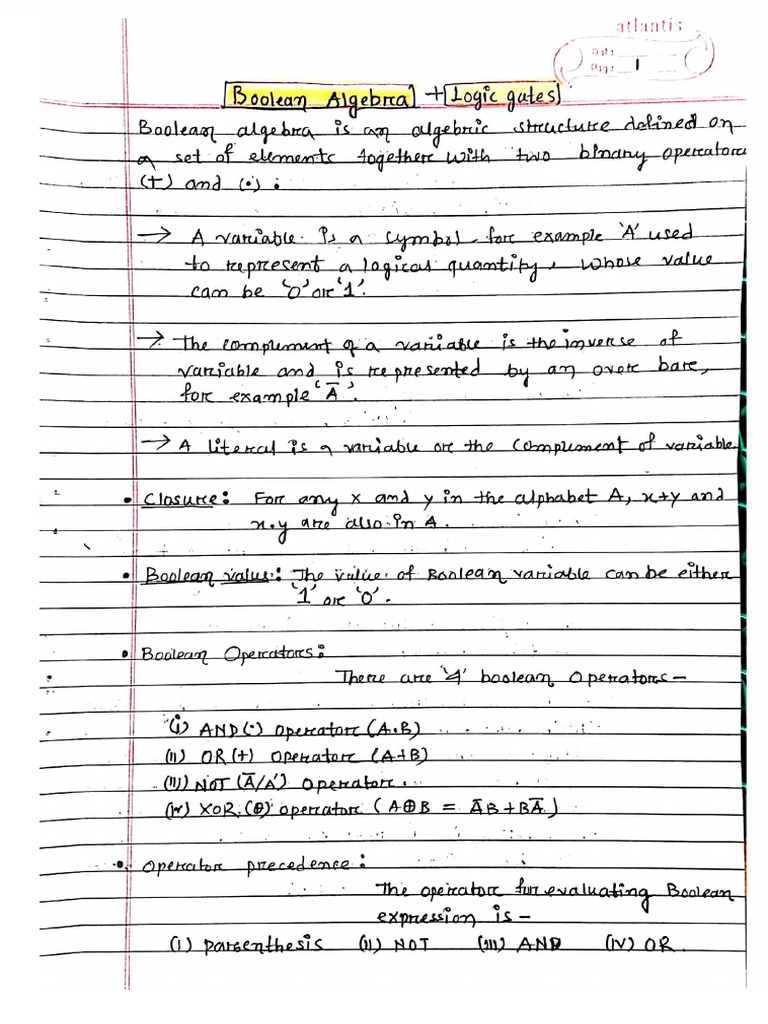 atlantis
Date:
Page: 1
Boolean Algebra + Logic gates
Boolean algebra is an algebric structure defined on
a set of elements together with two binary operators
(+) and (·) :
→ A variable is a symbol, for example 'A' used
to represent a logical quantity, whose value
can be '0' or '1'.
→ The complement of a variable is the inverse of
variable and is represented by an over bar,
for example 'A̅'.
→ A literal is a variable or the complement of variable
• Closure: For any x and y in the alphabet A, x+y and
x.y are also in A.
• Boolean value: The value of Boolean variable can be either
'1' or '0'.
• Boolean Operators:
There are '4' boolean operators-
(i) AND(·) operator (A.B)
(ii) OR(+) operator (A+B)
(iii) NOT (A̅/A') operator.
(iv) XOR (⊕) operator (A⊕B = A̅B+BA̅)
• Operator precedence:
The operator for evaluating Boolean
expression is -
(i) Parsenthesis (ii) NOT (iii) AND (iv) OR